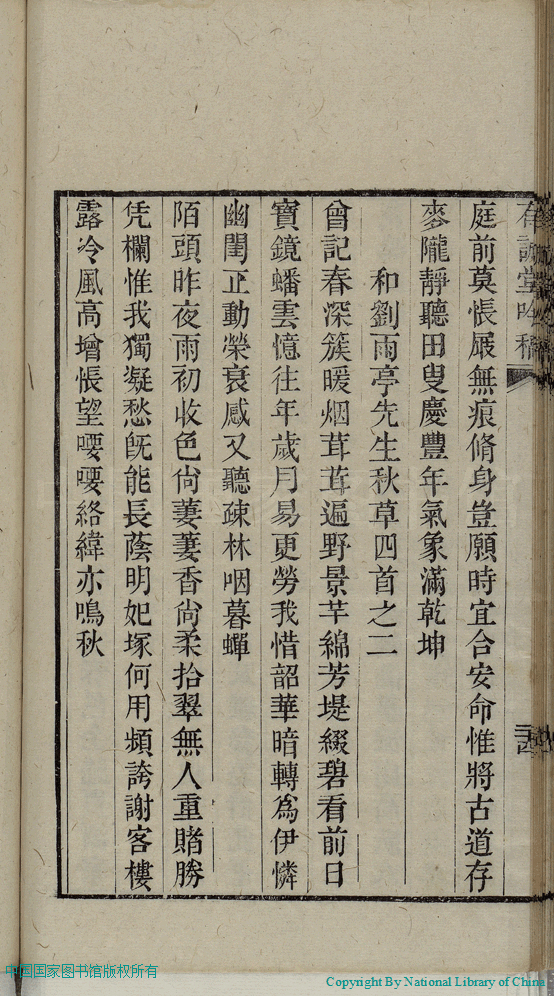 庭前莫悵屐無痕脩身豈願時宜合安命惟將古道存
麥隴靜聽田叟慶豐年氣象滿乾坤
和劉雨亭先生秋草四首之二
曾記春深簇暖烟茸茸遍野景芊綿芳堤綴碧看前日
寶鏡蟠雲憶往年歲月易更勞我惜韶華暗轉爲伊憐
幽閨正動榮衰感又聽疎林咽暮蟬
陌頭昨夜雨初收色尙萋萋香尙柔拾翠無人重賭勝
凭欄惟我獨凝愁旣能長蔭明妃塚何用頻誇謝客樓
露冷風高增悵望喓喓絡緯亦鳴秋
中国国家图书馆版权所有
Copyright By National Library of China